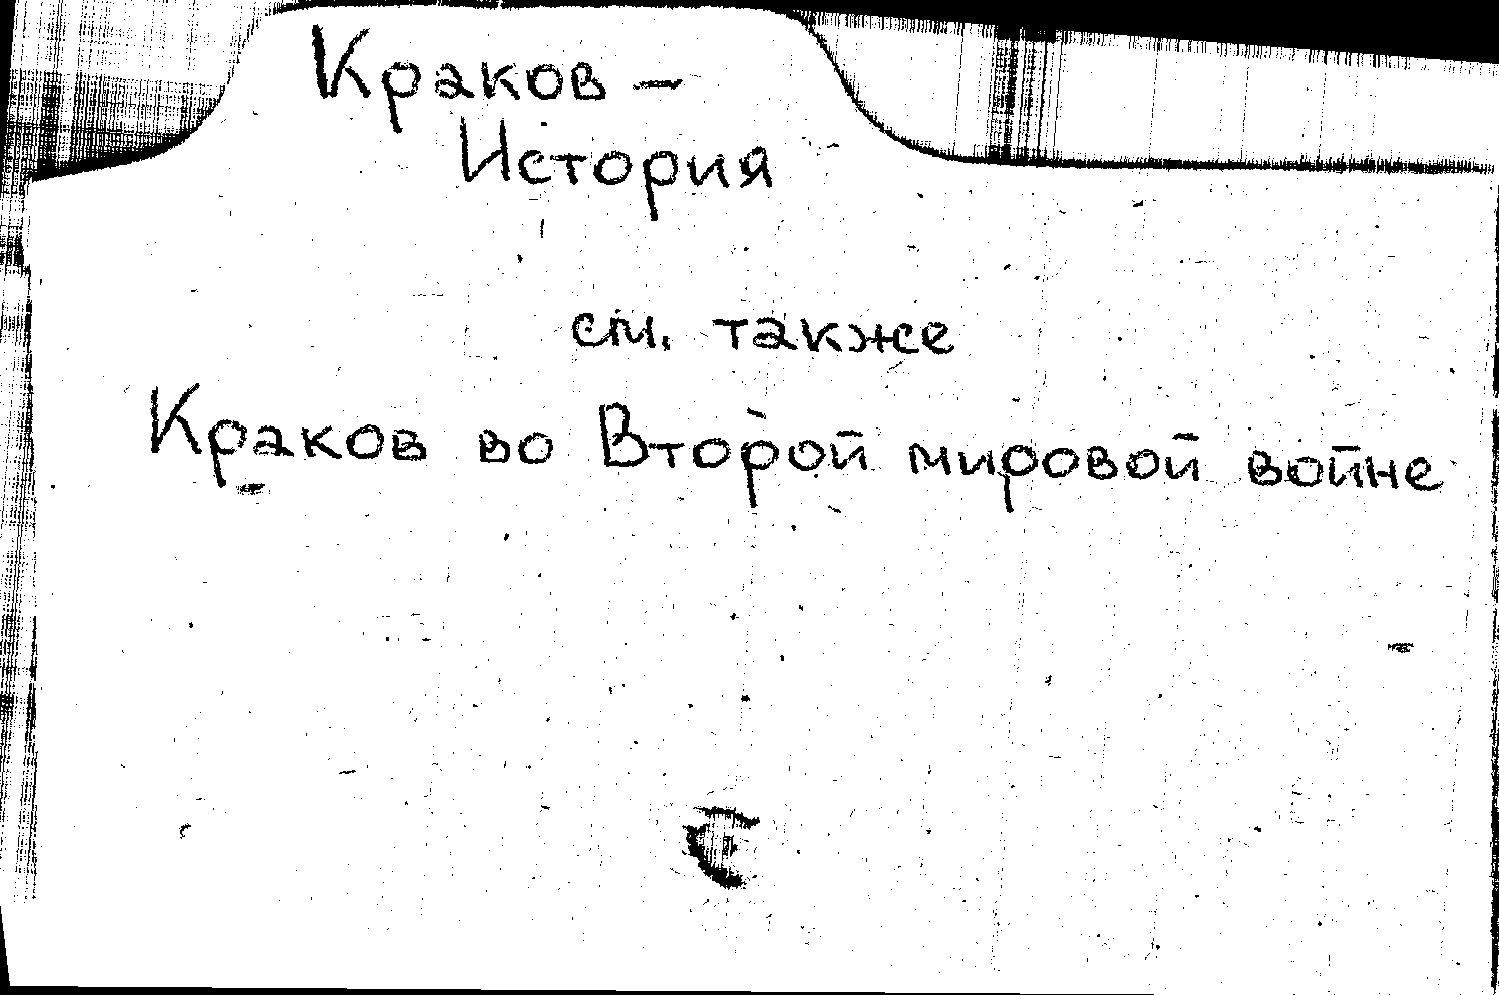 Краков –
История
см. также
Краков во Второй мировой войне